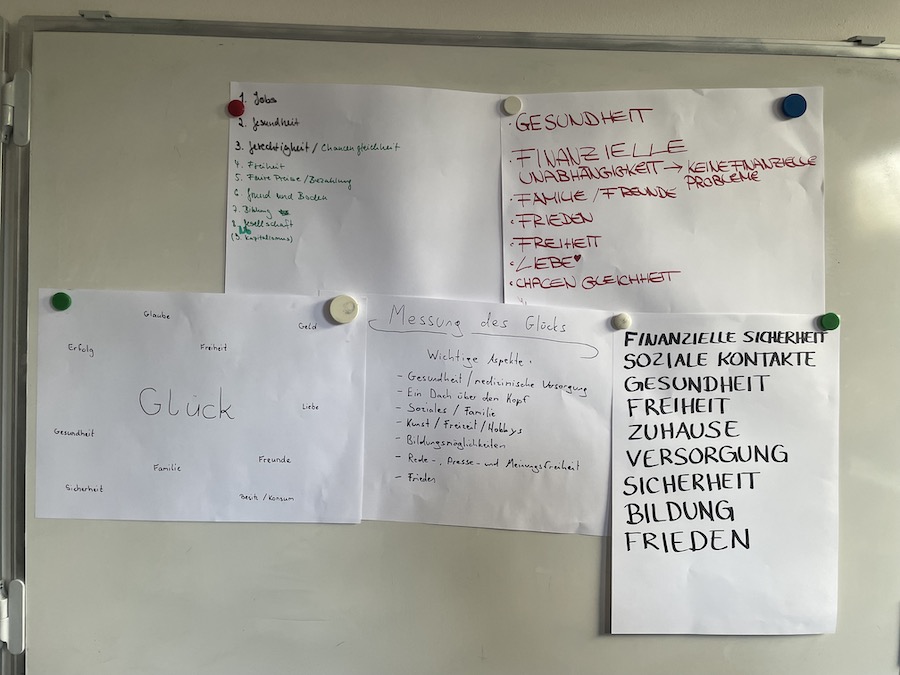 1. Jobs
2. Gesundheit
3. Gerechtigkeit / Chancengleichheit
4. Freiheit
5. Faire Preise / Bezahlung
6. Grund und Boden
7. Bildung
8. Gesellschaft
(9. Kapitalismus)
· GESUNDHEIT
· FINANZIELLE
UNABHÄNGIGKEIT → KEINE FINANZIELLE
PROBLEME
· FAMILIE / FREUNDE
· FRIEDEN
· FREIHEIT
· LIEBE ♥
· CHACEN GLEICHHEIT
Glaube
Geld
Erfolg
Freiheit
Glück
Liebe
Gesundheit
Familie
Freunde
Sicherheit
Besitz / Konsum
Messung des Glücks
Wichtige Aspekte:
- Gesundheit / medizinische Versorgung
- Ein Dach über den Kopf
- Soziales / Familie
- Kunst / Freizeit / Hobbys
- Bildungsmöglichkeiten
- Rede-, Presse- und Meinungsfreiheit
- Frieden
FINANZIELLE SICHERHEIT
SOZIALE KONTAKTE
GESUNDHEIT
FREIHEIT
ZUHAUSE
VERSORGUNG
SICHERHEIT
BILDUNG
FRIEDEN